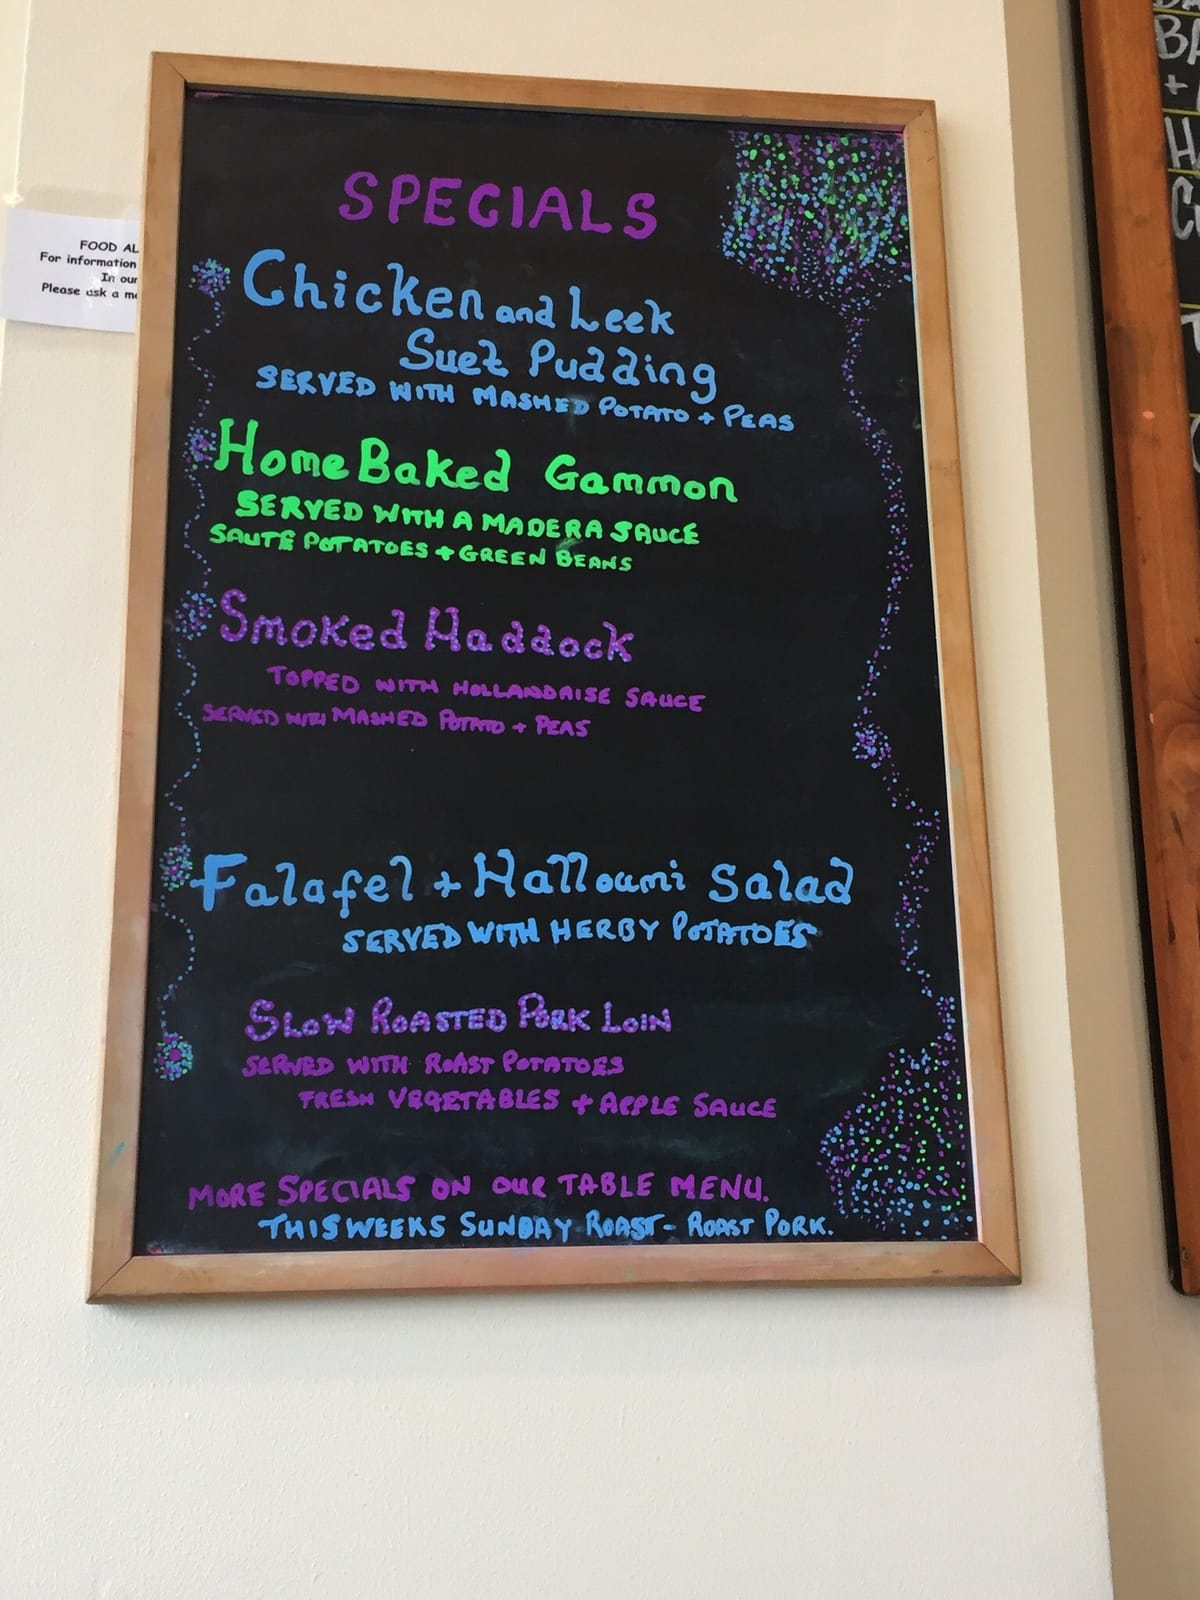 SPECIALS
Chicken and Leek
Suet Pudding
SERVED WITH MASHED POTATO + PEAS
Home Baked Gammon
SERVED WITH A MADERA SAUCE
SAUTE POTATOES + GREEN BEANS
Smoked Haddock
TOPPED WITH HOLLANDAISE SAUCE
SERVED WITH MASHED POTATO + PEAS
Falafel + Halloumi Salad
SERVED WITH HERBY POTATOES
SLOW ROASTED PORK LOIN
SERVED WITH ROAST POTATOES
FRESH VEGETABLES + APPLE SAUCE
MORE SPECIALS ON OUR TABLE MENU.
THIS WEEKS SUNDAY ROAST - ROAST PORK.
FOOD AL
For information
In our
Please ask a